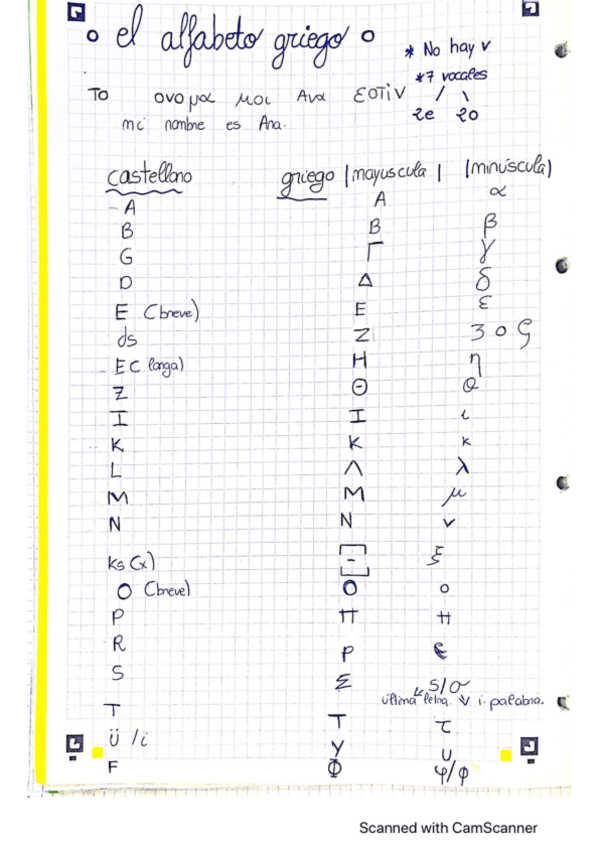 ° el alfabeto griego °
* No hay v
* 7 vocales
2e 2o
TO ονομα μοι Ανα εστiν
mi nombre es Ana.
castellano griego |mayuscula | |minúscula)
- A Α α
B Β β
G Γ γ
D Δ δ
E (breve) Ε ε
ds Ζ 3 o ς
- E (larga) Η η
Z Θ θ
I Ι ι
K Κ κ
L Λ λ
M Μ μ
N Ν ν
ks (x) Ξ ξ
O (breve) Ο ο
P Π π
R Ρ
S Σ ς/σ
última letra ↓ i. palabra.
T Τ τ
ü / i Υ υ
F Φ φ/ϕ
Scanned with CamScanner